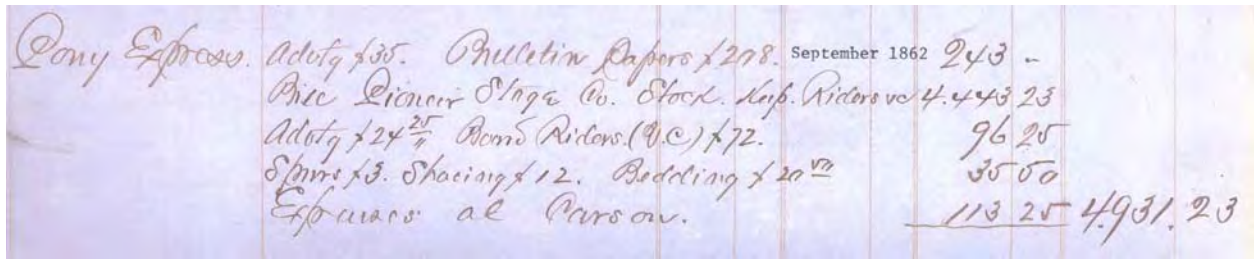 Pony Express. Advtg $35. Bulletin Papers $208. September 1862 243 -
Bill Pioneer Stage Co. Stock. Keep. Riders &c 4.443 23
Advtg $24 25 Board Riders. (V.C) $72. 96 25
Spurs $3. Shoeing $12. Bedding $20 50 35 50
Expenses at Carson. 113 25 4.931.23